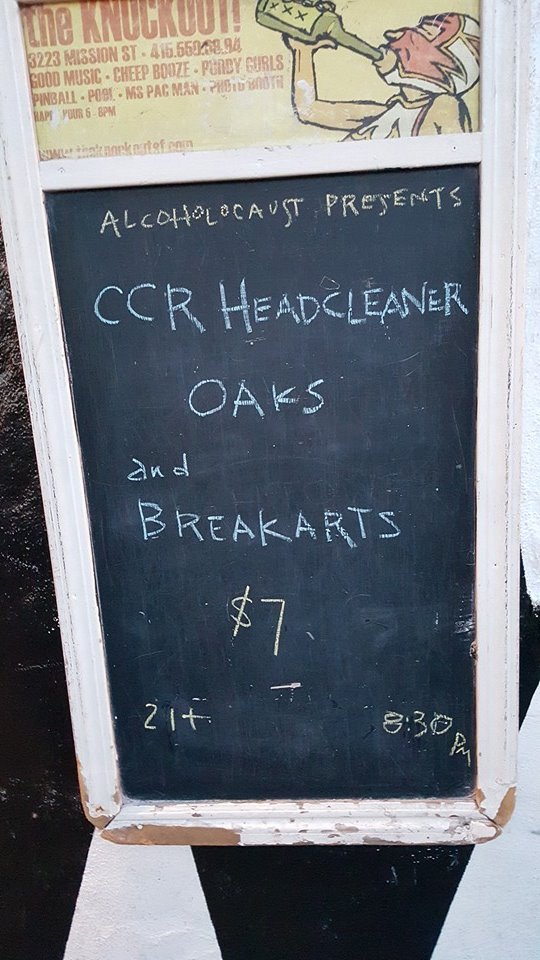 the KNOCKOUT!
3223 MISSION ST · 415.550.6994
GOOD MUSIC · CHEEP BOOZE · PURDY GURLS
PINBALL · POOL · MS PAC MAN · PHOTO BOOTH
HAPPY HOUR 6 - 8PM
www.theknockoutsf.com
XXX
ALCOHOLOCAUST PRESENTS
CCR HEADCLEANER
OAKS
and
BREAKARTS
$7
21+ 8:30 PM